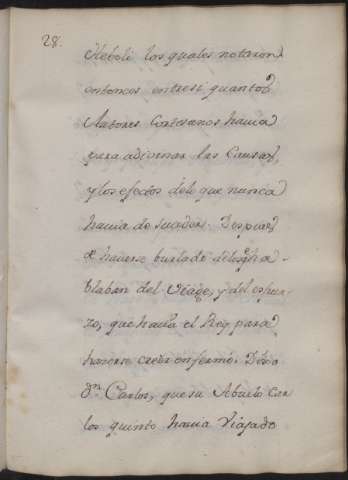 28.
Heboli los quales notaron
entonces entresi quantos
Autores Cortesanos havia
para adivinar las Causas,
y los efectos dèlo que nunca
havia de suceder. Despues
de haverse burlado
blaban del Viage, y del esfuer-
zo, que hacia el Rey para
hacerse creer enfermo. Dixo
Dn. Carlos, que su Abuelo Car
los quinto havia Viajado